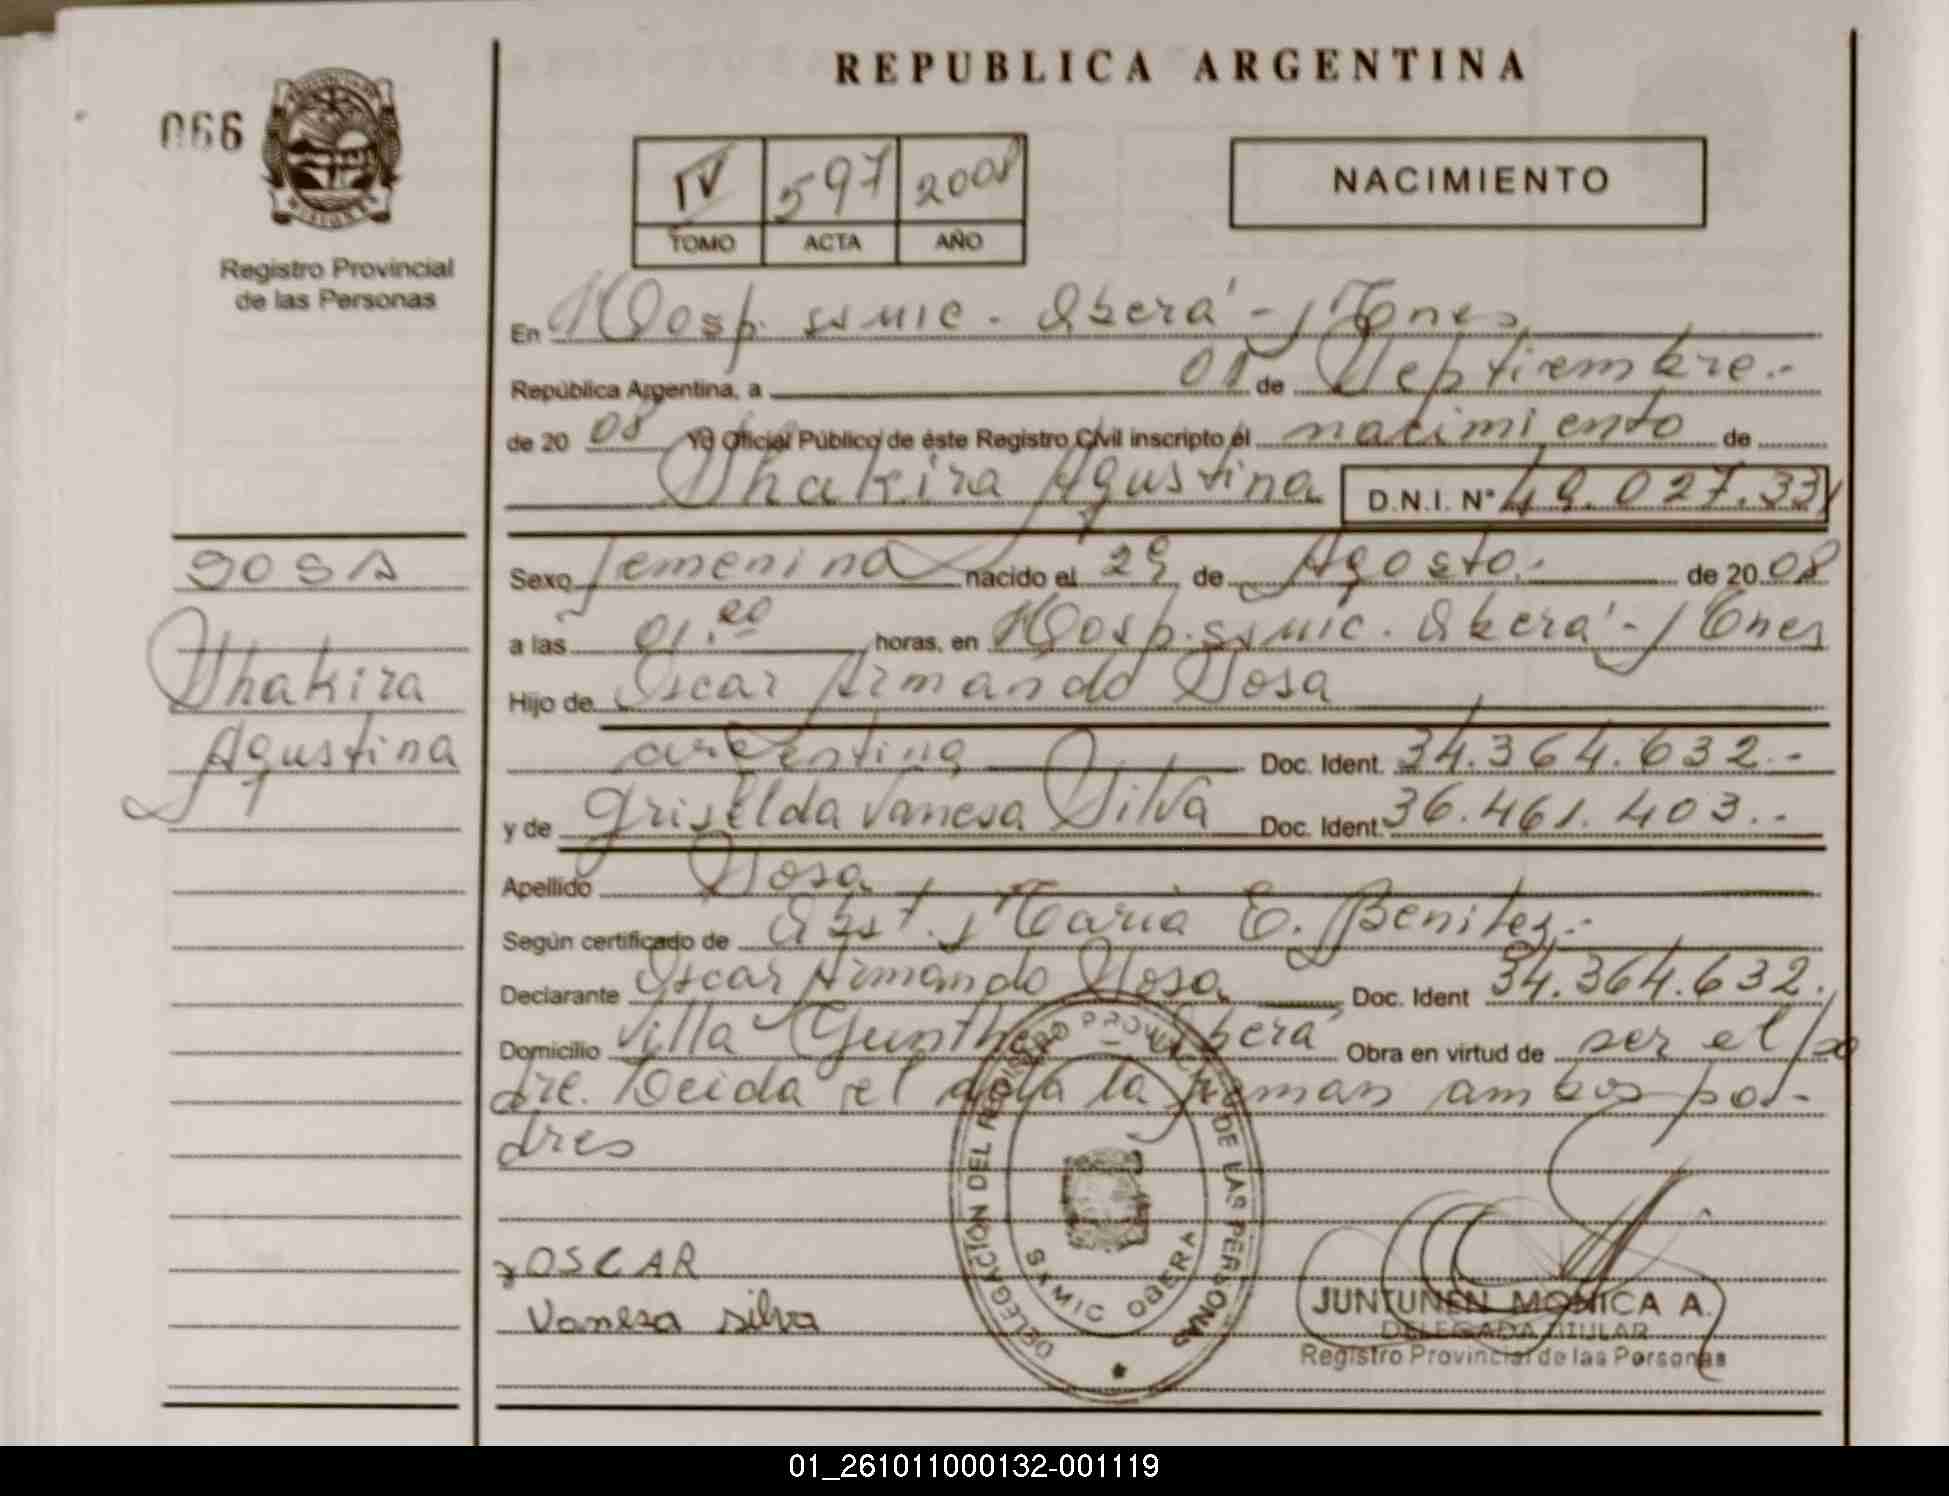 REPUBLICA ARGENTINA
066
IV 597 2008
TOMO ACTA AÑO
NACIMIENTO
Registro Provincial
de las Personas
En Hosp. ssmic. Oberá - Mnes
República Argentina, a 01 de Septiembre.-
de 20 08 Yo Oficial Público de éste Registro Civil inscripto el nacimiento de
Shakira Agustina D.N.I. N° 49.027.331
SOSA
Shakira
Agustina
Sexo femenino nacido el 29 de Agosto.- de 20 08
a las 01.20 horas, en Hosp. ssmic. Oberá - Mnes
Hijo de Oscar Armando Sosa
argentina Doc. Ident. 34.364.632.-
y de Griselda Vanesa Silva Doc. Ident. 36.461.403.-
Apellido Sosa
Según certificado de Obst. Maria E. Benitez.-
Declarante Oscar Armando Sosa Doc. Ident 34.364.632.
Domicilio Villa Gunther - Oberá Obra en virtud de ser el pa
dre. Leida el acta la firman ambos pa-
dres
OSCAR
Vanesa silva
DELEGACION DEL REGISTRO PROVINCIAL DE LAS PERSONAS
SAMIC OBERA
JUNTUNEN MONICA A.
DELEGADA TITULAR
Registro Provincial de las Personas
01_261011000132-001119